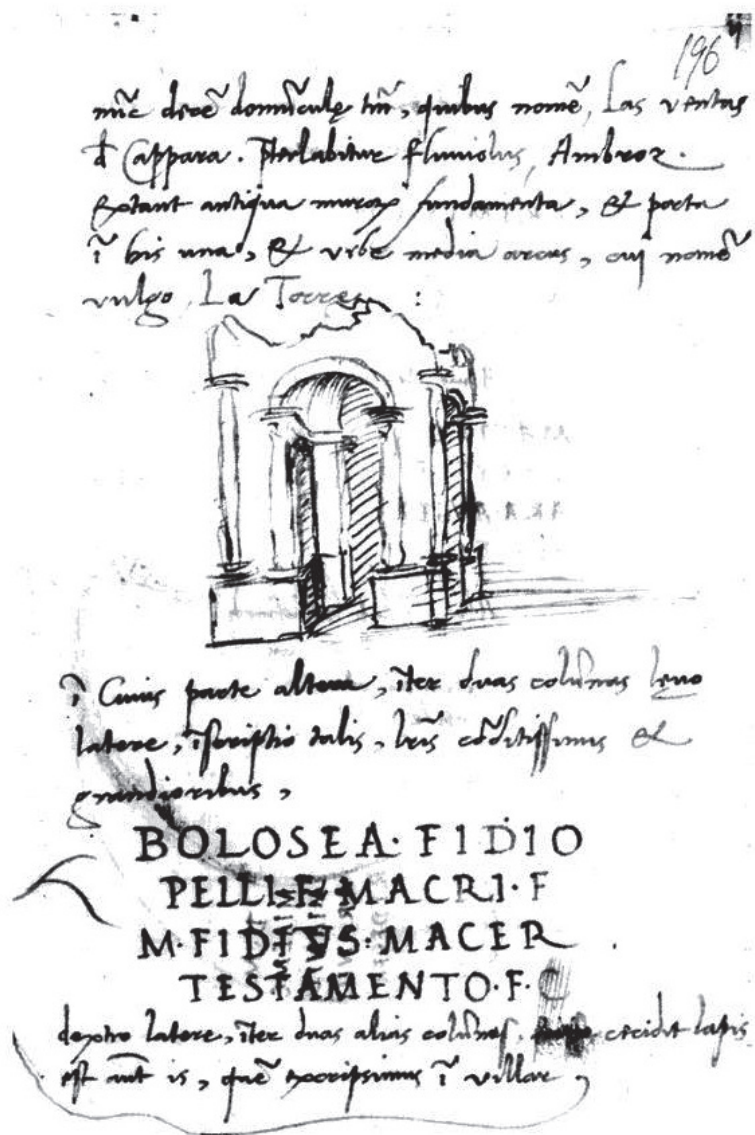 196
nūc decē domūculę tm̄, quibus nomē, Las ventas
đ Cappara. p̄terlabitur fluuiolus, Ambroz.
extant antiqua muroꝝ fundamenta, & porta
ī his una, & vrbe media arcus, cui nomē
vulgo, La Torre :
ī Cuius parte altera, īter duas colūnas lęuo
latere, īscriptio talis, lrīs cōditissimis &
grandioribus,
BOLOSEA· FIDIO
PELLI·F· MACRI·F
M·FIDIVS·MACER
TESTAMENTO·F·C
dextro latere, īter duas alias colūnas, cecidit lapis
est aūt is, quē excripsimus ī villar,